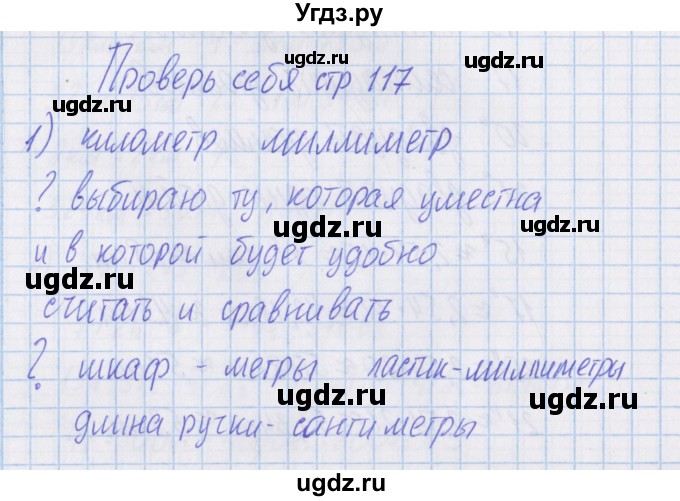 Угдз.ру
Проверь себя стр 117
1) километр миллиметр
? выбираю ту, которая уместна
и в которой будет удобно
считать и сравнивать
? шкаф - метры ластик - миллиметры
длина ручки - сантиметры
ugdz.ru
ugdz.ru
ugdz.ru
ugdz.ru
ugdz.ru
ugdz.ru
ugdz.ru
ugdz.ru
ugdz.ru
ugdz.ru
ugdz.ru
ugdz.ru
ugdz.ru
ugdz.ru